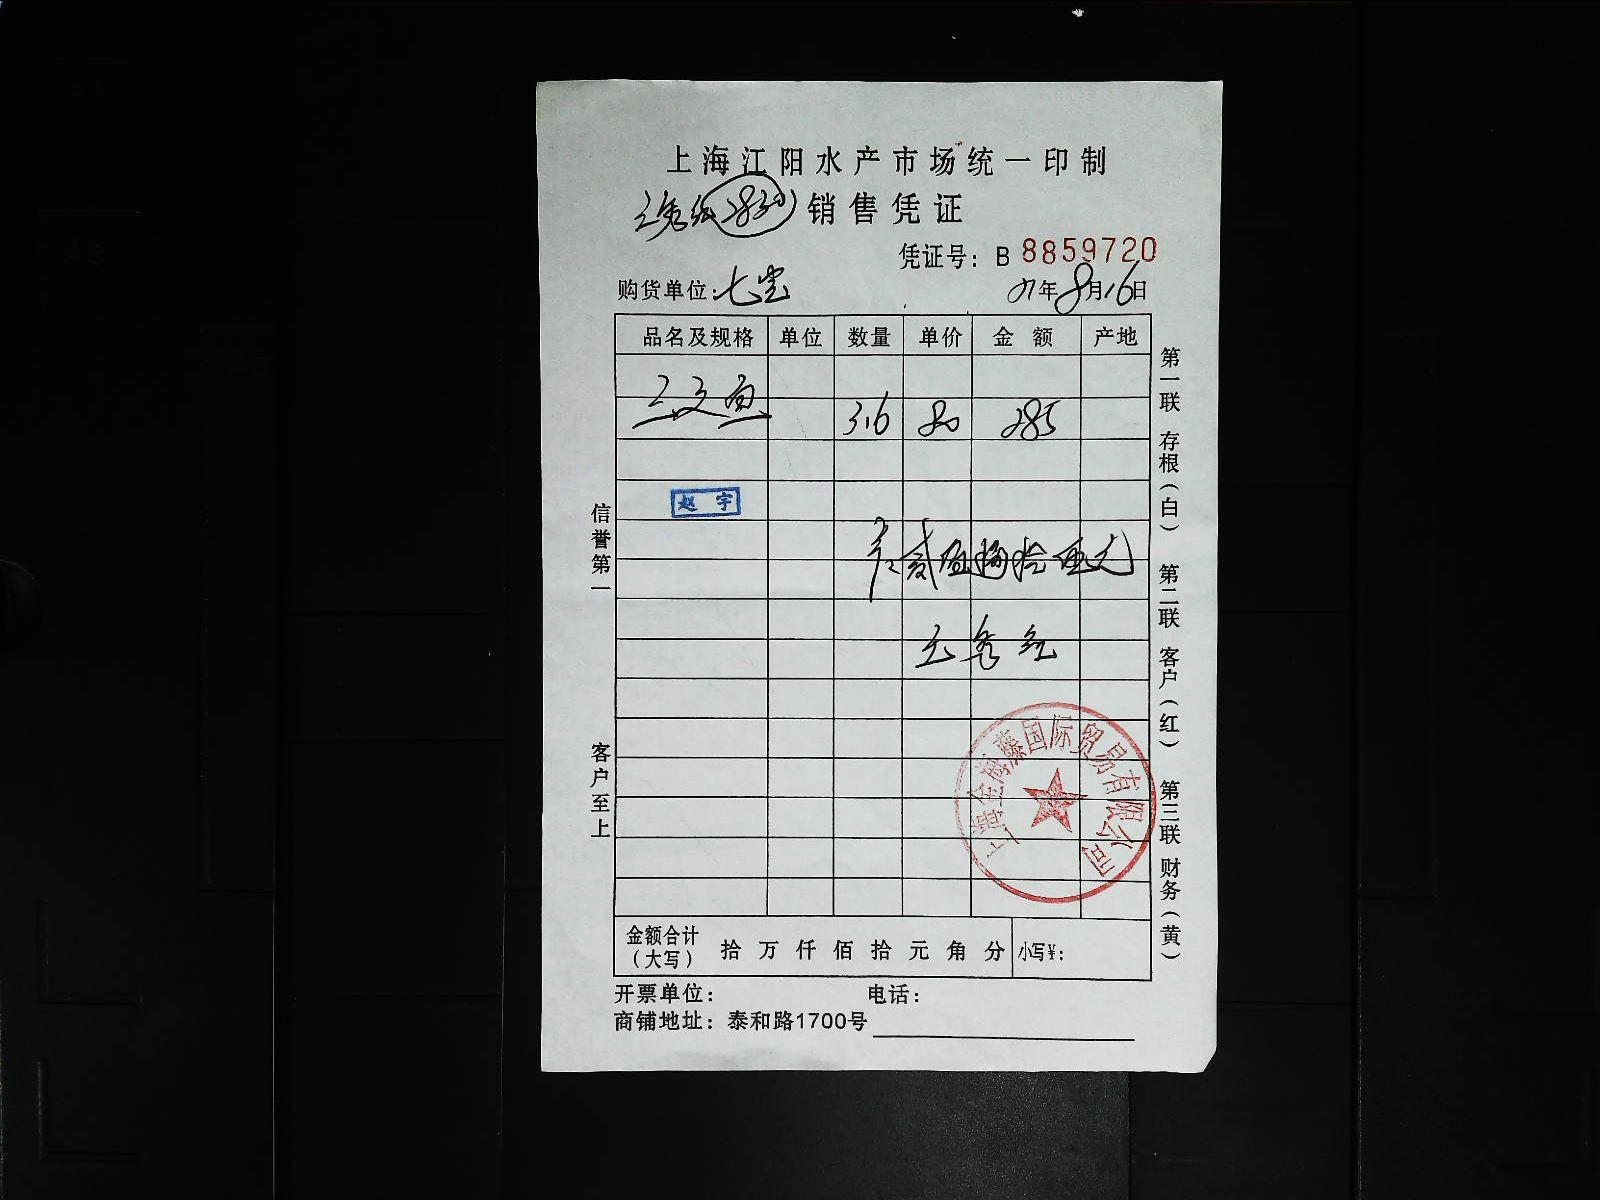 上海江阳水产市场统一印制
销售凭证
凭证号：B 8859720
购货单位：七宝
年8月16日
品名及规格 单位 数量 单价 金额 产地
三文鱼 3.6 80 285
赵宇
贰佰捌拾伍元
上海金海藤国际贸易有限公司
金额合计（大写） 拾万仟佰拾元角分 小写￥：
开票单位： 电话：
商铺地址：泰和路1700号
信誉第一 客户至上
第一联 存根（白） 第二联 客户（红） 第三联 财务（黄）